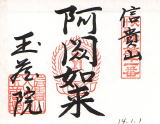 信貴山
阿閦如来
玉蔵院
14.1.1